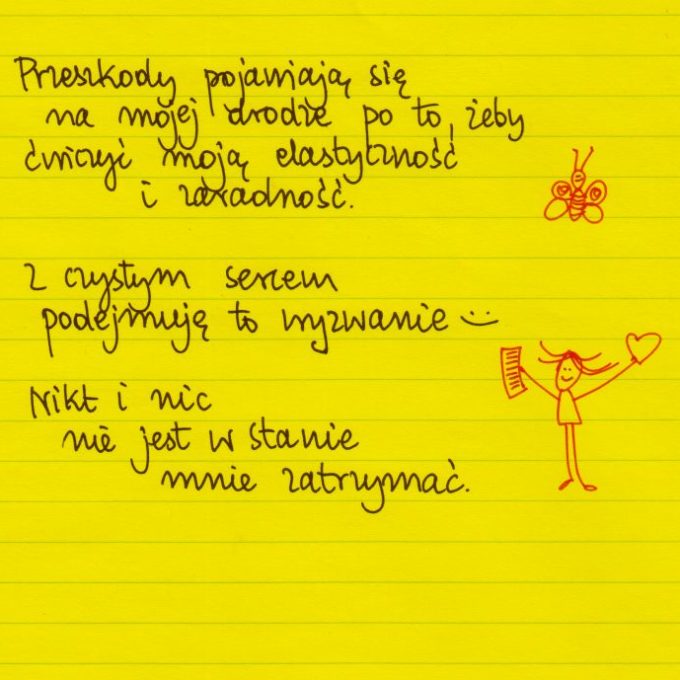 Przeszkody pojawiają się
na mojej drodze po to, żeby
ćwiczyć moją elastyczność
i zaradność.
Z czystym sercem
podejmuję to wyzwanie :)
Nikt i nic
nie jest w stanie
mnie zatrzymać.